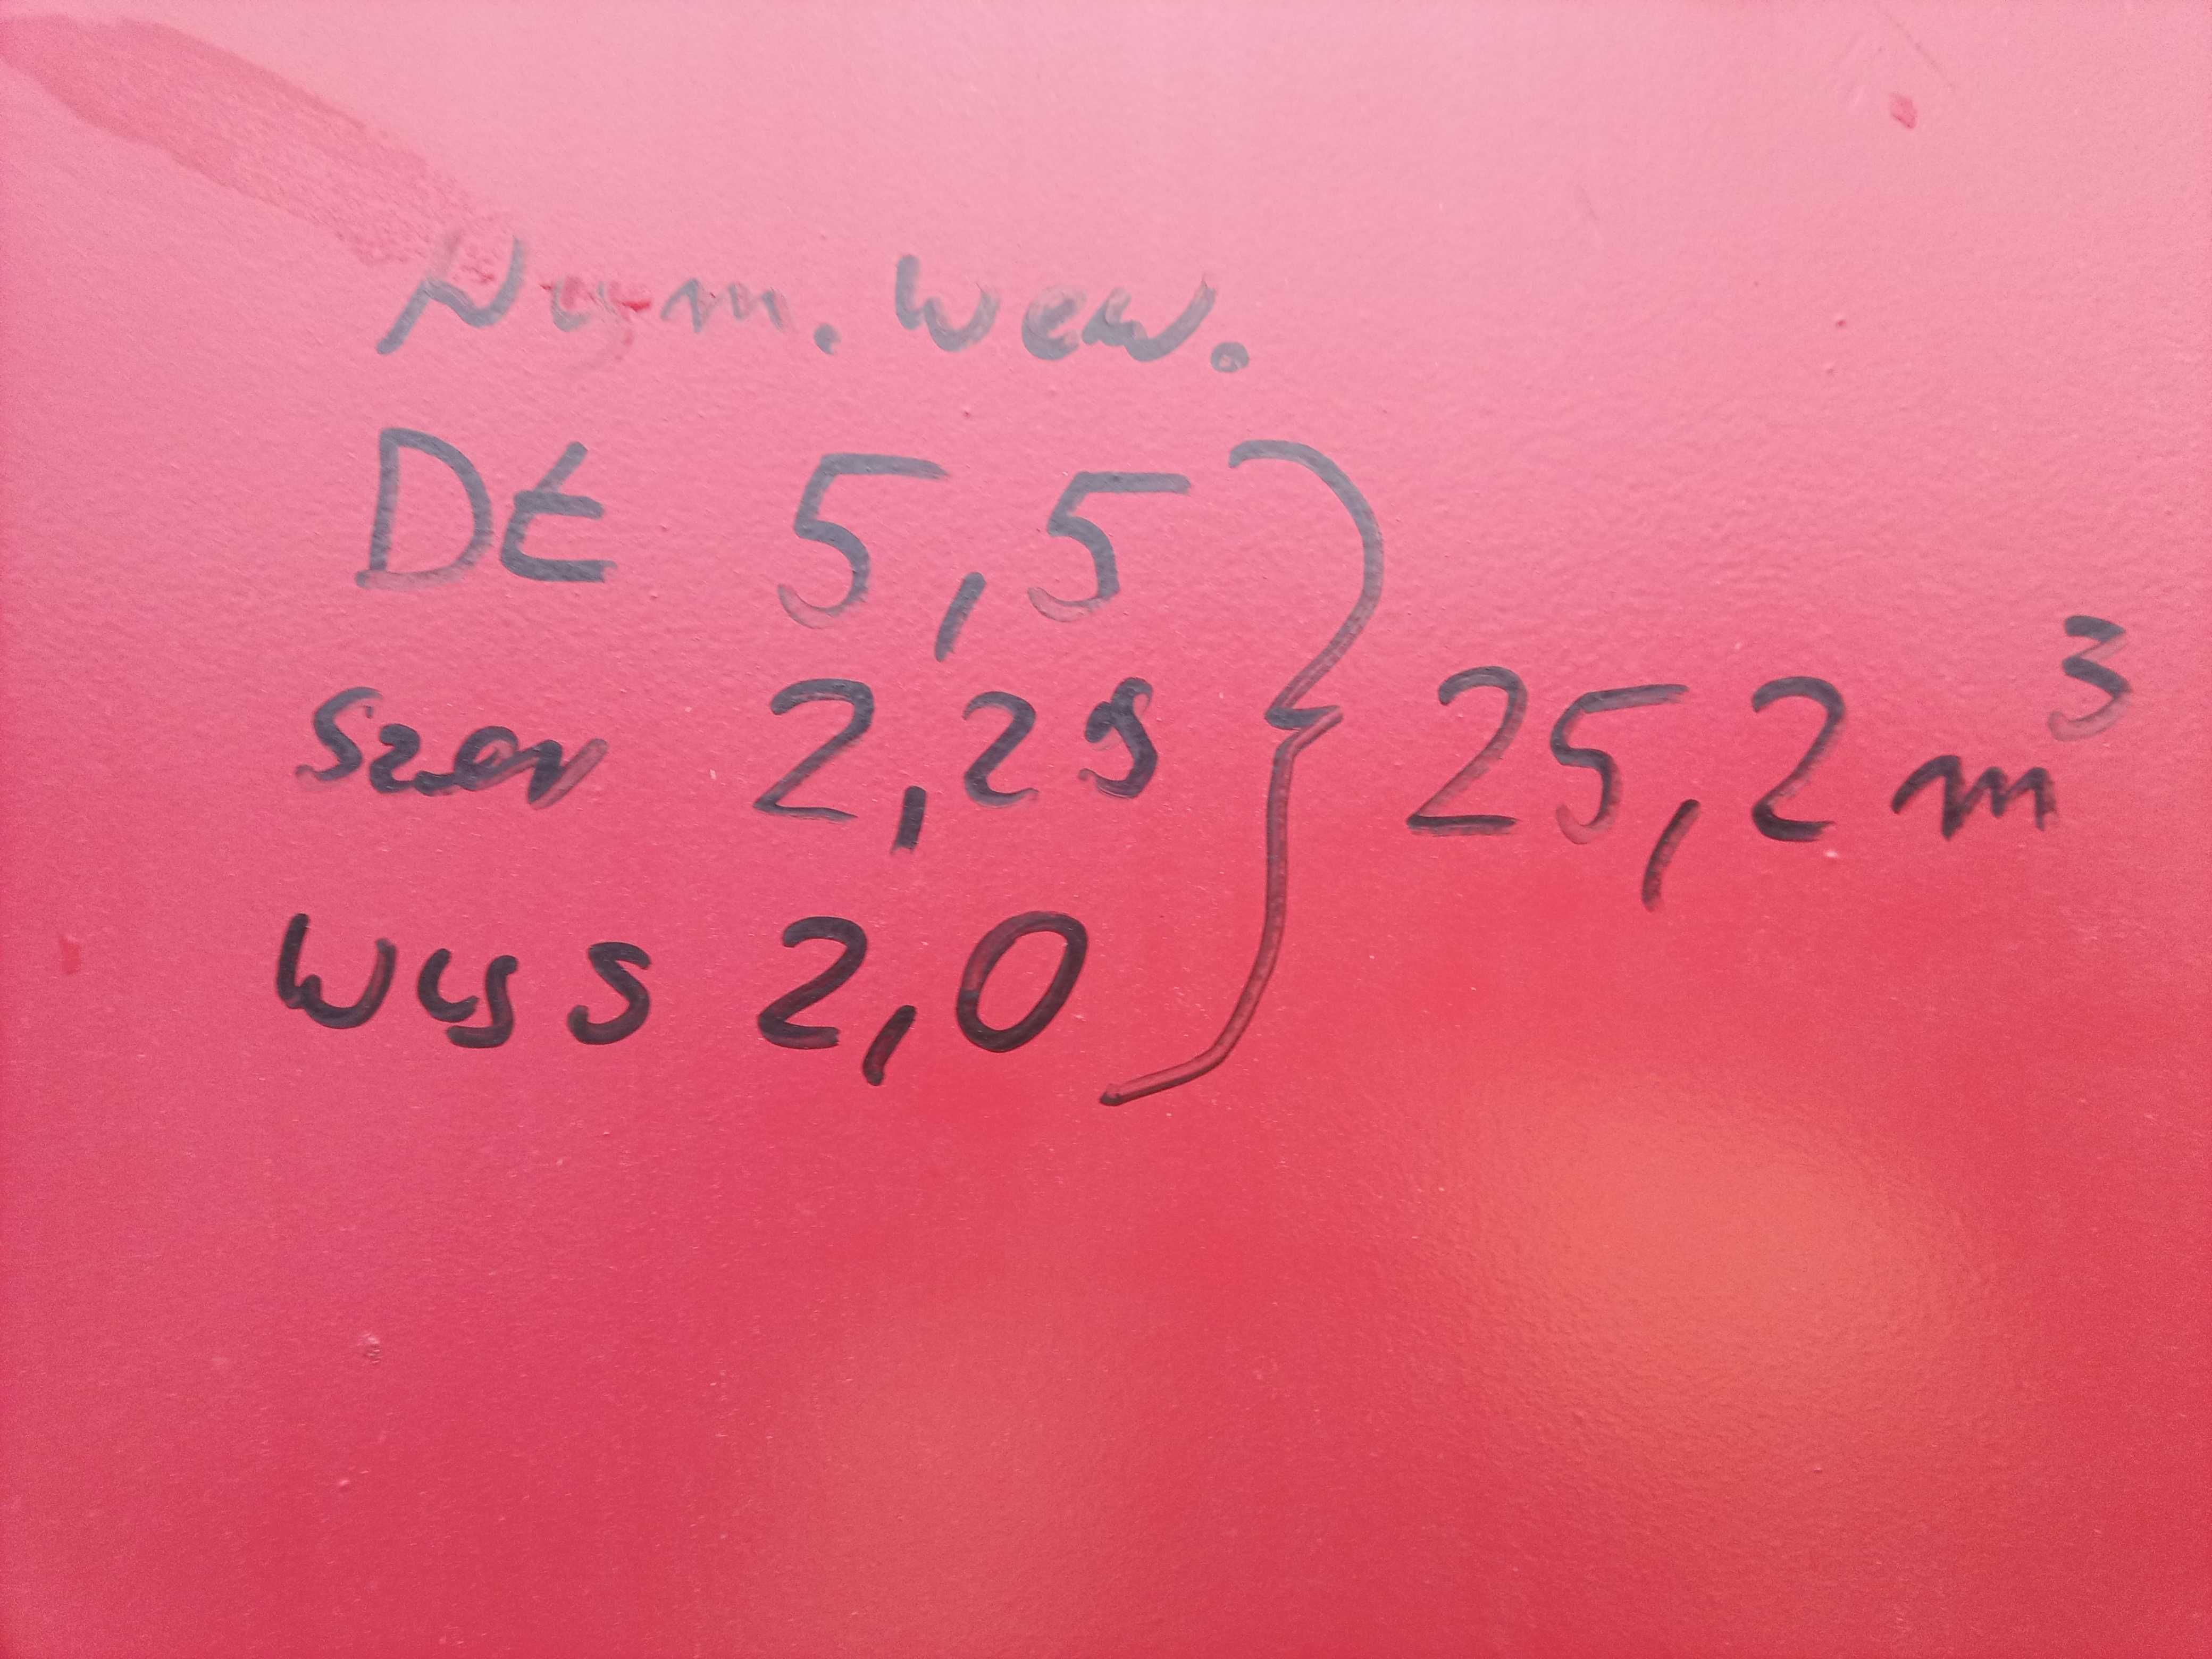 Wym. wew.
DŁ 5,5
Szer 2,29 25,2 m³
Wys 2,0